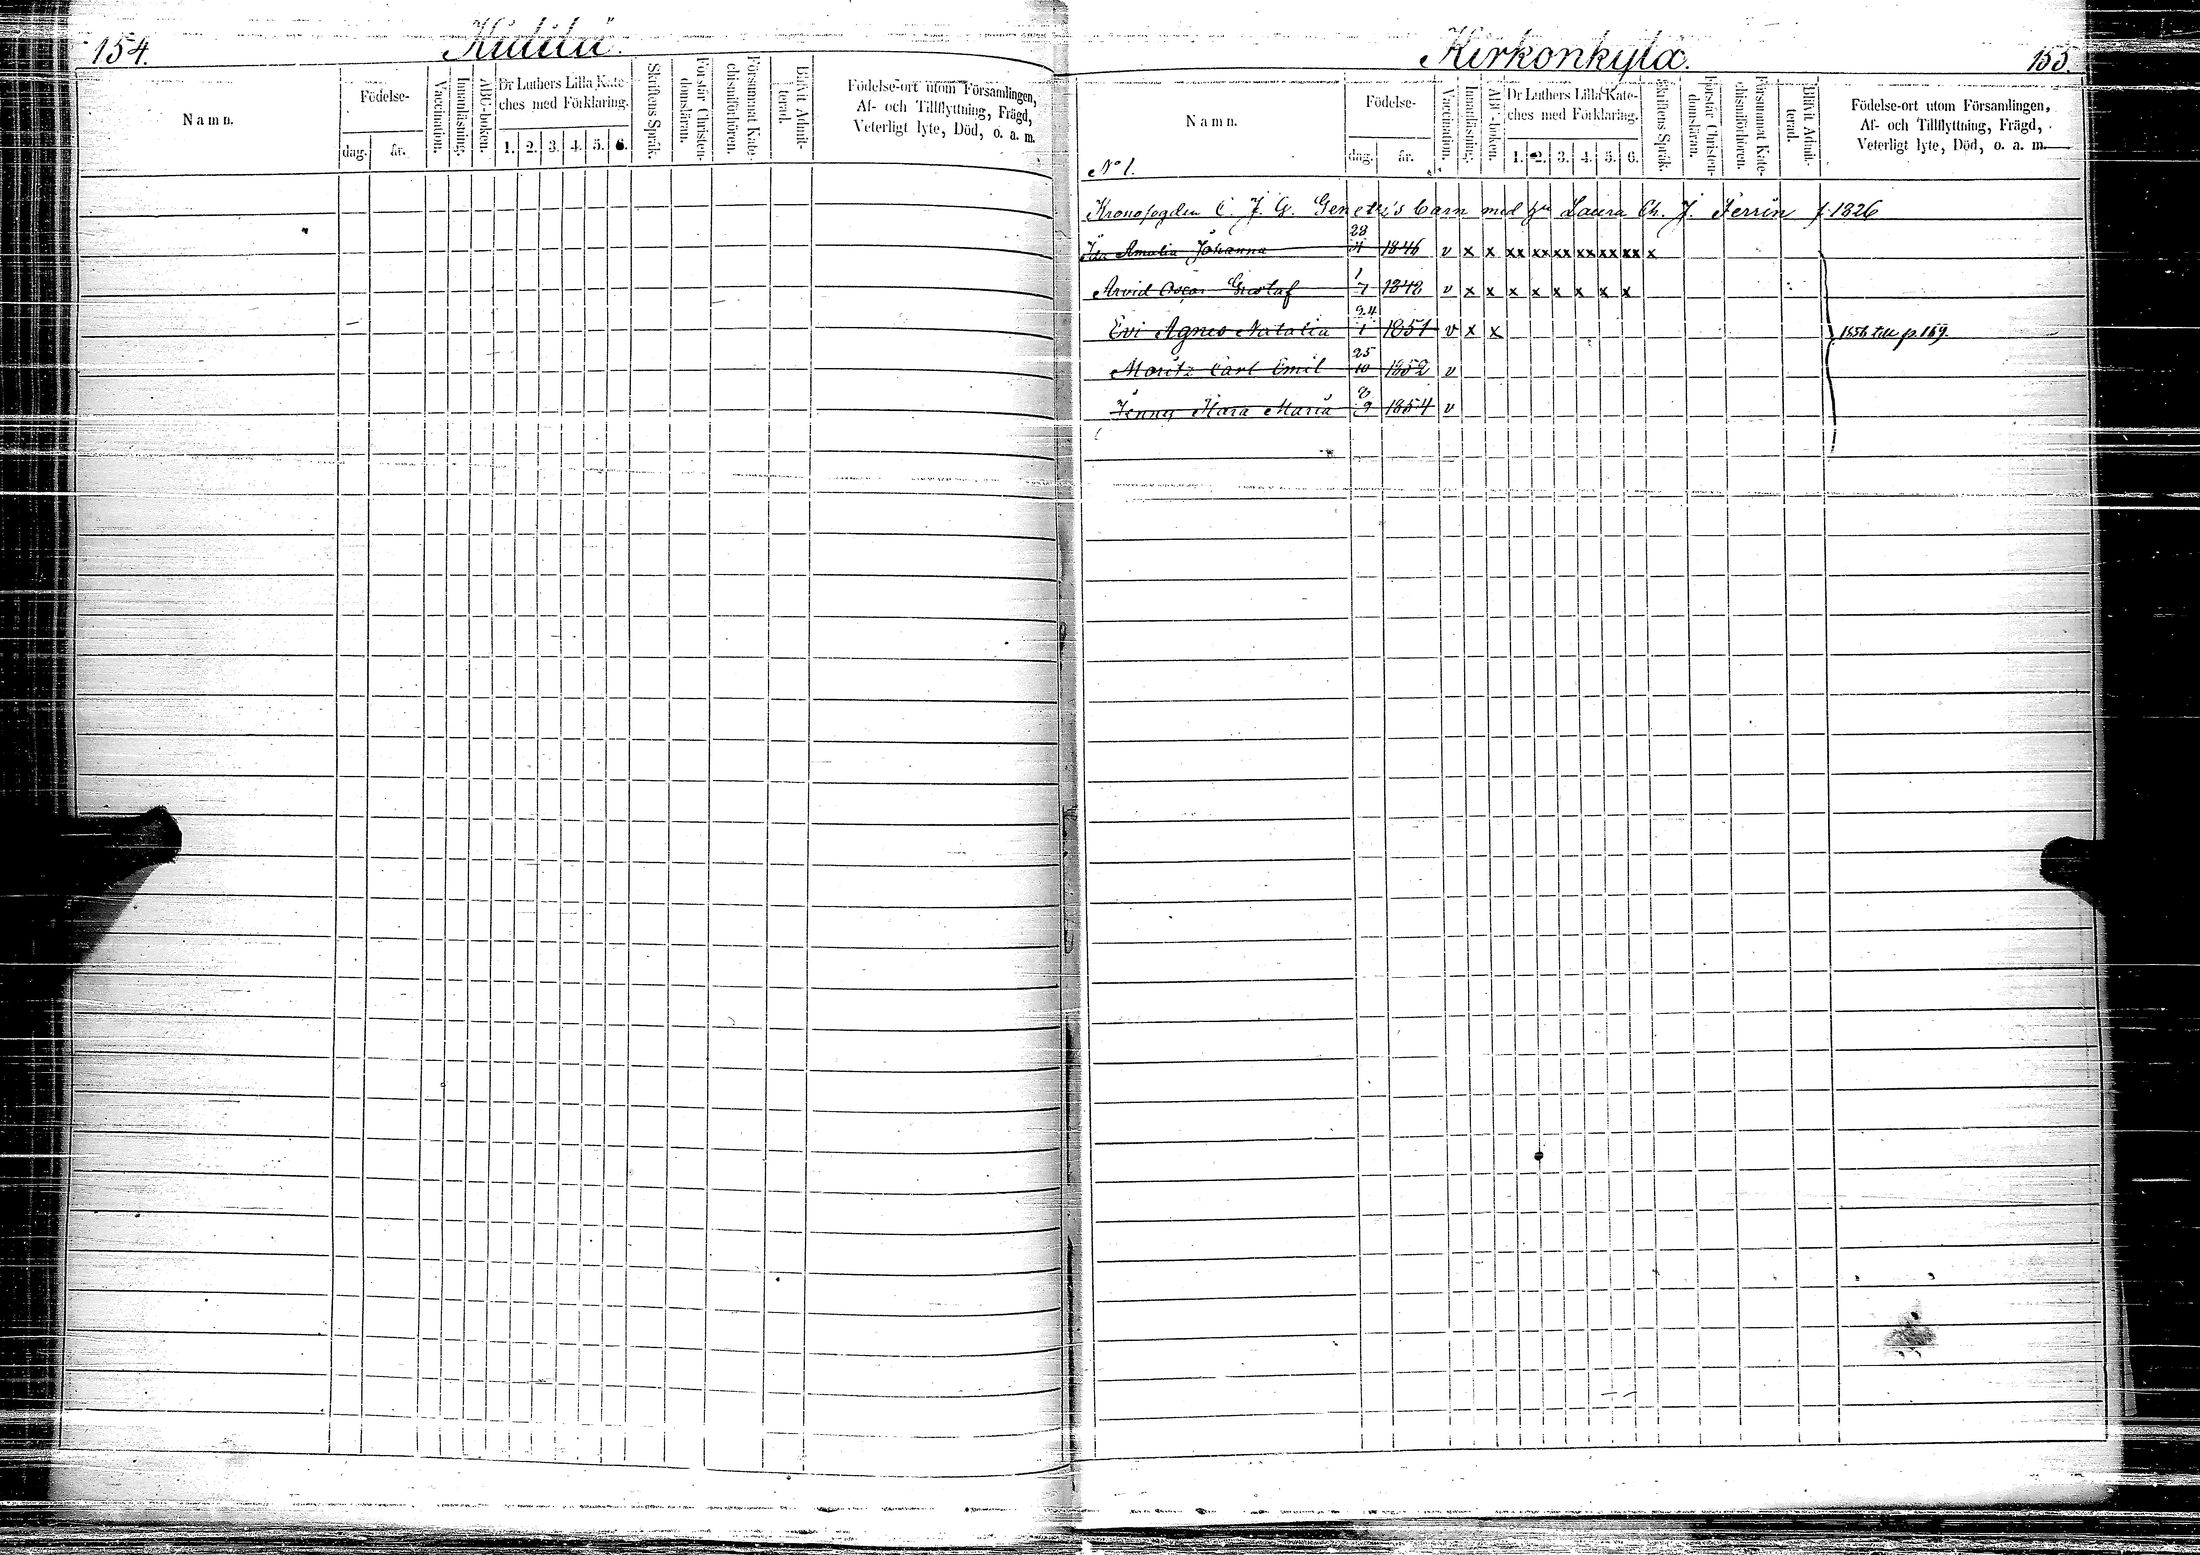 154.
Kittilä.
Namn.
Födelse-
dag.
år.
Vaccination.
Innanläsning.
ABC-boken.
Dr Luthers Lilla Kate-
ches med Förklaring.
1. 2. 3. 4. 5. 6.
Skriftens Språk.
Förstår Christen-
domsläran.
Försummat Kate-
chismiförhören.
Blifvit Admit-
terad.
Födelse-ort utom Församlingen,
Af- och Tillflyttning, Frägd,
Veterligt lyte, Död, o. a. m.
Kirkonkylä.
155.
Namn.
No 1.
Födelse-
dag.
år.
Vaccination.
Innanläsning.
ABC-boken.
Dr Luthers Lilla Kate-
ches med Förklaring.
1. 2. 3. 4. 5. 6.
Skriftens Språk.
Förstår Christen-
domsläran.
Försummat Kate-
chismiförhören.
Blifvit Admit-
terad.
Födelse-ort utom Församlingen,
Af- och Tillflyttning, Frägd,
Veterligt lyte, Död, o. a. m.
Kronofogden C. J. G. barn med Laura Ch. J. f. 1826
Amalia Johanna 28/4 1846 v x x xx xx xx xx xx xx x
Arvid Oscar Gustaf 1/7 1848 v x x x x x x x x
Evi Agnes Natalia 24/1 1851 v x x 1856 till p. 169.
Moritz Carl Emil 25/10 1852 v
Jenny Maria 8/9 1854 v